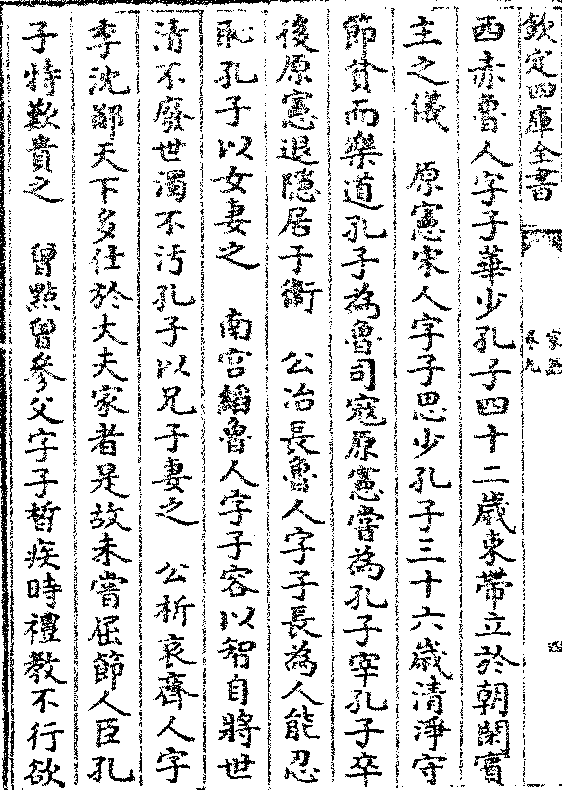 欽定四庫全書
家語
卷九
西赤魯人字子華少孔子四十二歲束帶立於朝閑賓
主之儀　原憲宋人字子思少孔子三十六歲清淨守
節貧而樂道孔子為魯司寇原憲嘗為孔子宰孔子卒
後原憲退隱居于衛　公冶長魯人字子長為人能忍
恥孔子以女妻之　南宮縚魯人字子容以智自將世
清不廢世濁不汚孔子以兄子妻之　公析哀齊人字
季沈鄙天下多仕於大夫家者是故未嘗屈節人臣孔
子特歎貴之　曾點曾參父字子晳疾時禮教不行欲